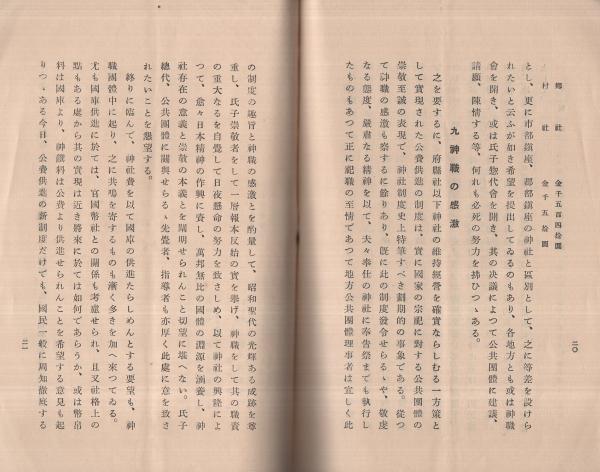 郷社　金千五百四拾圓
村社　金千五拾圓
とし、更に市部鎭座、郡部鎭座の神社と區別として、之に等差を設けら
れたいと云ふが如き希望を提出してゐるのもあり、各地方とも或は神職
會を開き、或は氏子惣代會を開き、其の決議によつて公共團體に建議、
請願、陳情する等、何れも必死の努力を拂ひつゝある。
九　神職の感激
之を要するに、府縣社以下神社の維持經營を確實ならしむる一方策と
して實現された公費供進の制度は、實に國家の宗祀に對する公共團體の
崇敬至誠の表現で、神社制度史上特筆すべき劃期的の事象である。從つ
て神職の感激も察するに餘りあり、既に此の制度發令せらるゝや、敬虔
なる態度、嚴肅なる精神を以て、夫々奉仕の神社に奉告祭までも執行し
たものもあつて正に祀職の至情であつて地方公共團體理事者は宜しく此
二〇
の制度の趣旨と神職の感激とを酌量して、昭和聖代の光輝ある成跡を尊
重し、氏子崇敬者をして一層報本反始の實を擧げ、神職をして其の職責
の重大なるを自覺して日夜懸命の努力を致さしめ、以て神社の興隆によ
つて、愈々日本精神の作興に資し、萬邦無比の國體の淵源を涵養し、神
社存在の意義と崇敬の本義とを闡明せられんこと切望に堪へない。氏子
總代、公共團體に關與せらるゝ先覺者、指導者も亦厚く此處に意を致さ
れたいことを懇望する。
終りに臨んで、神社費を以て國庫の供進たらしめんとする要望も、神
職團體中に起り、之に共鳴を寄するものも漸く多きを加へ來つてゐる。
尤も國庫供進に於ては、官國幣社との關係も考慮せられ、且又社格上の
點もある處から其の實現は近き將來に於ては如何であらうか、或は幣帛
料は國庫より、神饌料は公費より供進せられんことを希望する意見も起
りつゝある今日、公費供進の新制度だけでも、國民一般に周知徹底する
二一